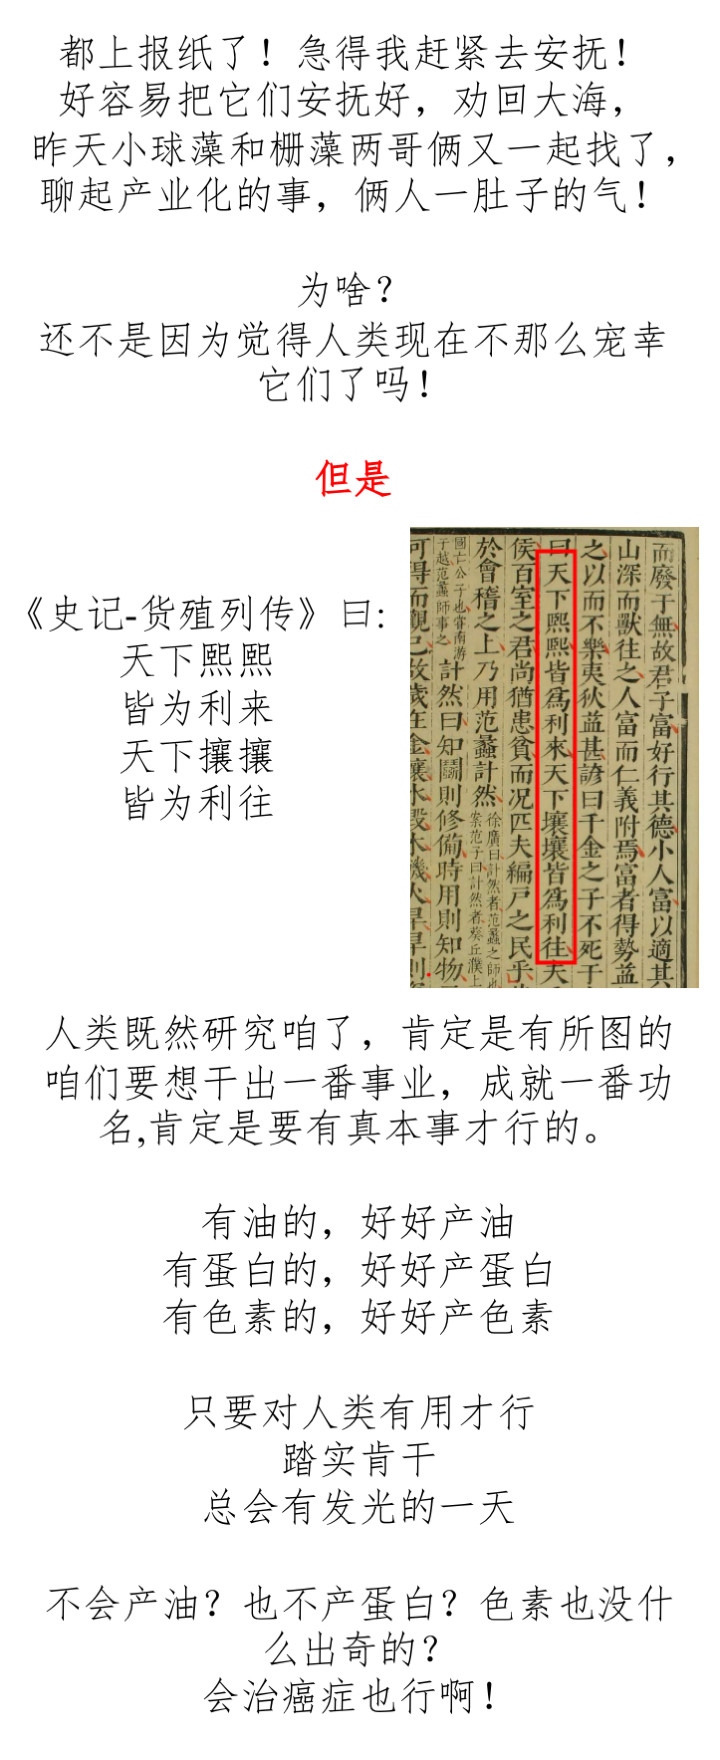 都上报纸了！急得我赶紧去安抚！
好容易把它们安抚好，劝回大海，
昨天小球藻和栅藻两哥俩又一起找了，
聊起产业化的事，俩人一肚子的气！
为啥？
还不是因为觉得人类现在不那么宠幸
它们了吗！
但是
《史记-货殖列传》曰：
天下熙熙
皆为利来
天下攘攘
皆为利往
而廢于無故君子富好行其德小人富以適其
山深而獸往之人富而仁義附焉富者得勢益
之以而不樂夷狄益甚諺曰千金之子不死于
曰天下熙熙皆爲利來天下壤壤皆爲利往夫
侯百室之君尚猶患貧而况匹夫編戸之民乎
於會稽之上乃用范蠡計然
徐廣曰計然者范蠡之師也
案范子曰計然者葵丘濮上
國亡公子也甞南游
于越范蠡師事之
計然曰知鬭則修備時用則知物
可得而觀已故歲在金穰水毀木饑火旱旱則
人类既然研究咱了，肯定是有所图的
咱们要想干出一番事业，成就一番功
名,肯定是要有真本事才行的。
有油的，好好产油
有蛋白的，好好产蛋白
有色素的，好好产色素
只要对人类有用才行
踏实肯干
总会有发光的一天
不会产油？也不产蛋白？色素也没什
么出奇的？
会治癌症也行啊！